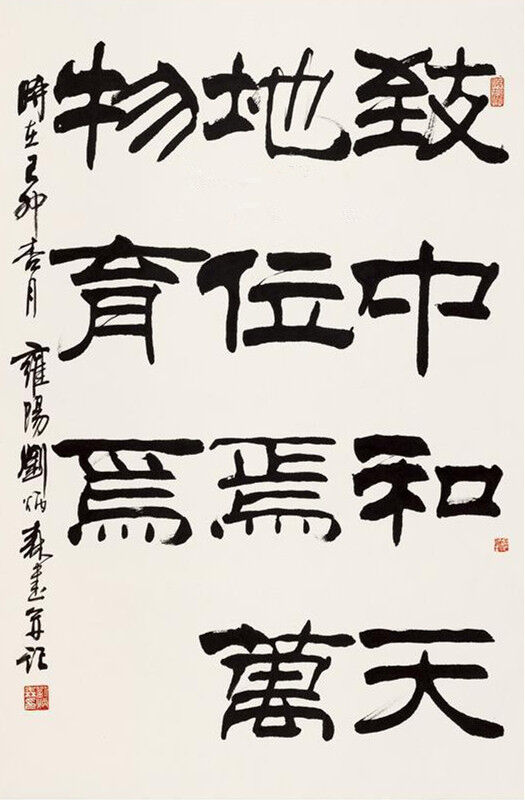 致中和天
地位焉萬
物育焉
時在己卯杏月 雍陽劉炳森書并記